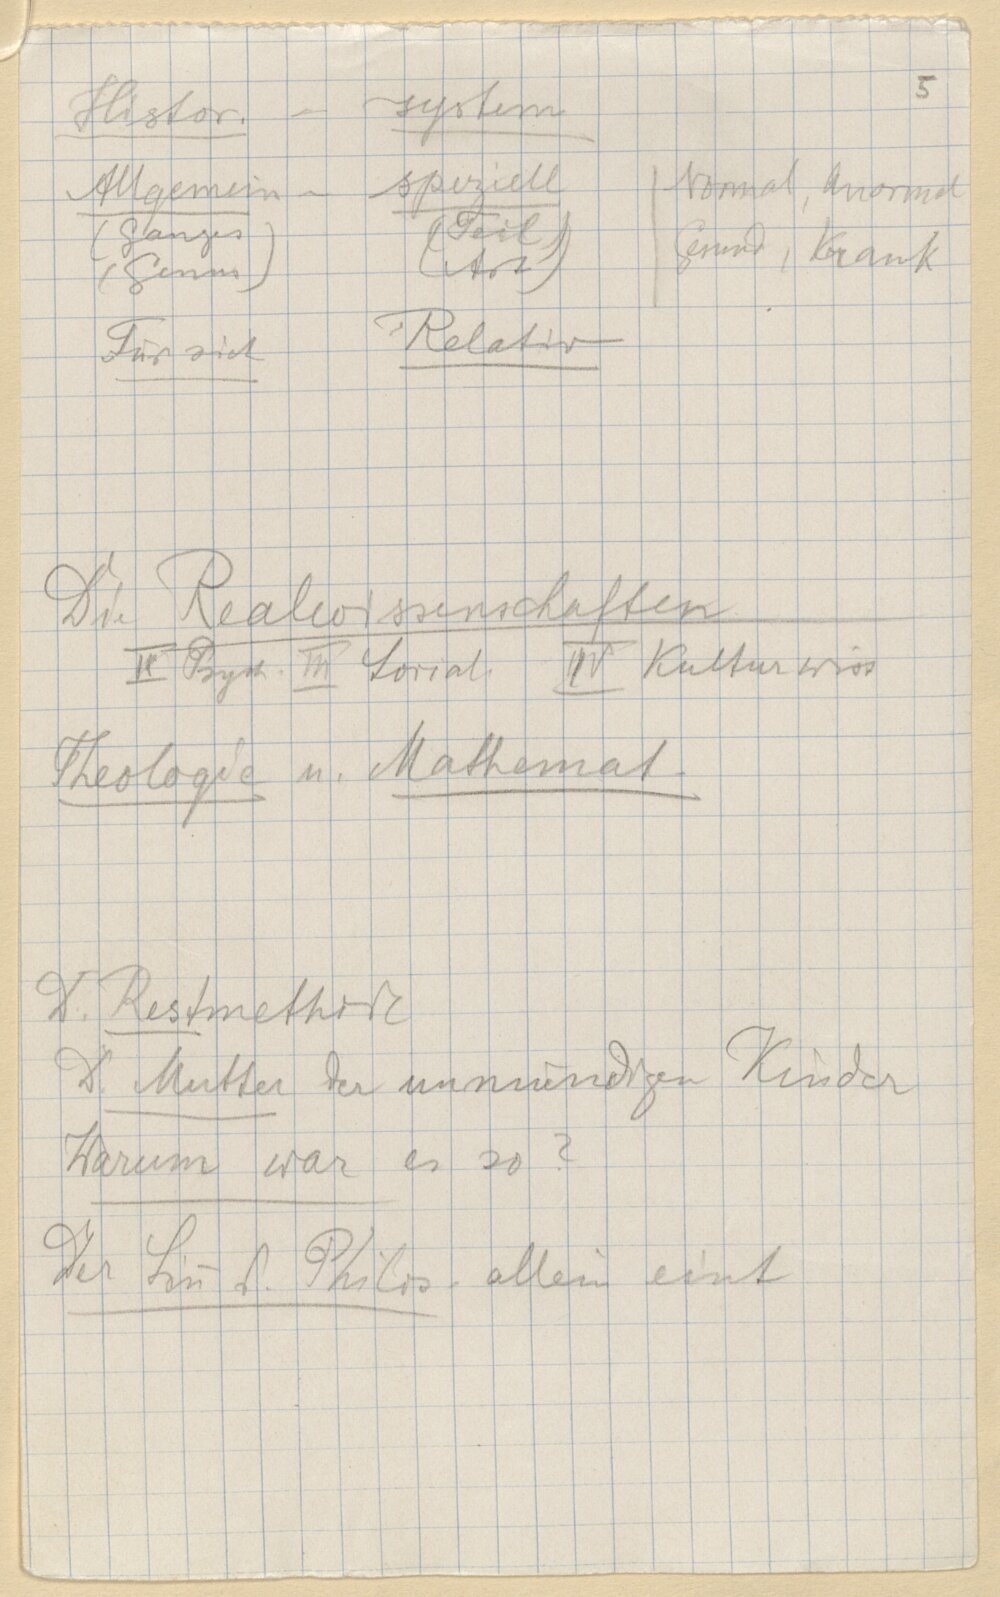 5
Histor. – system
Allgemein – speziell | Normal, Anormal
(Ganzes) (Teil)
(Genus) (Art) | Gesund, Krank
Für sich Relativ
Die Realwissenschaften
II Psych. III Sozial. IV Kulturwiss
Theologie u. Mathemat.
D. Restmethode
D. Mutter der unmündigen Kinder
Warum war es so?
Der Sinn d. Philos. allein eint